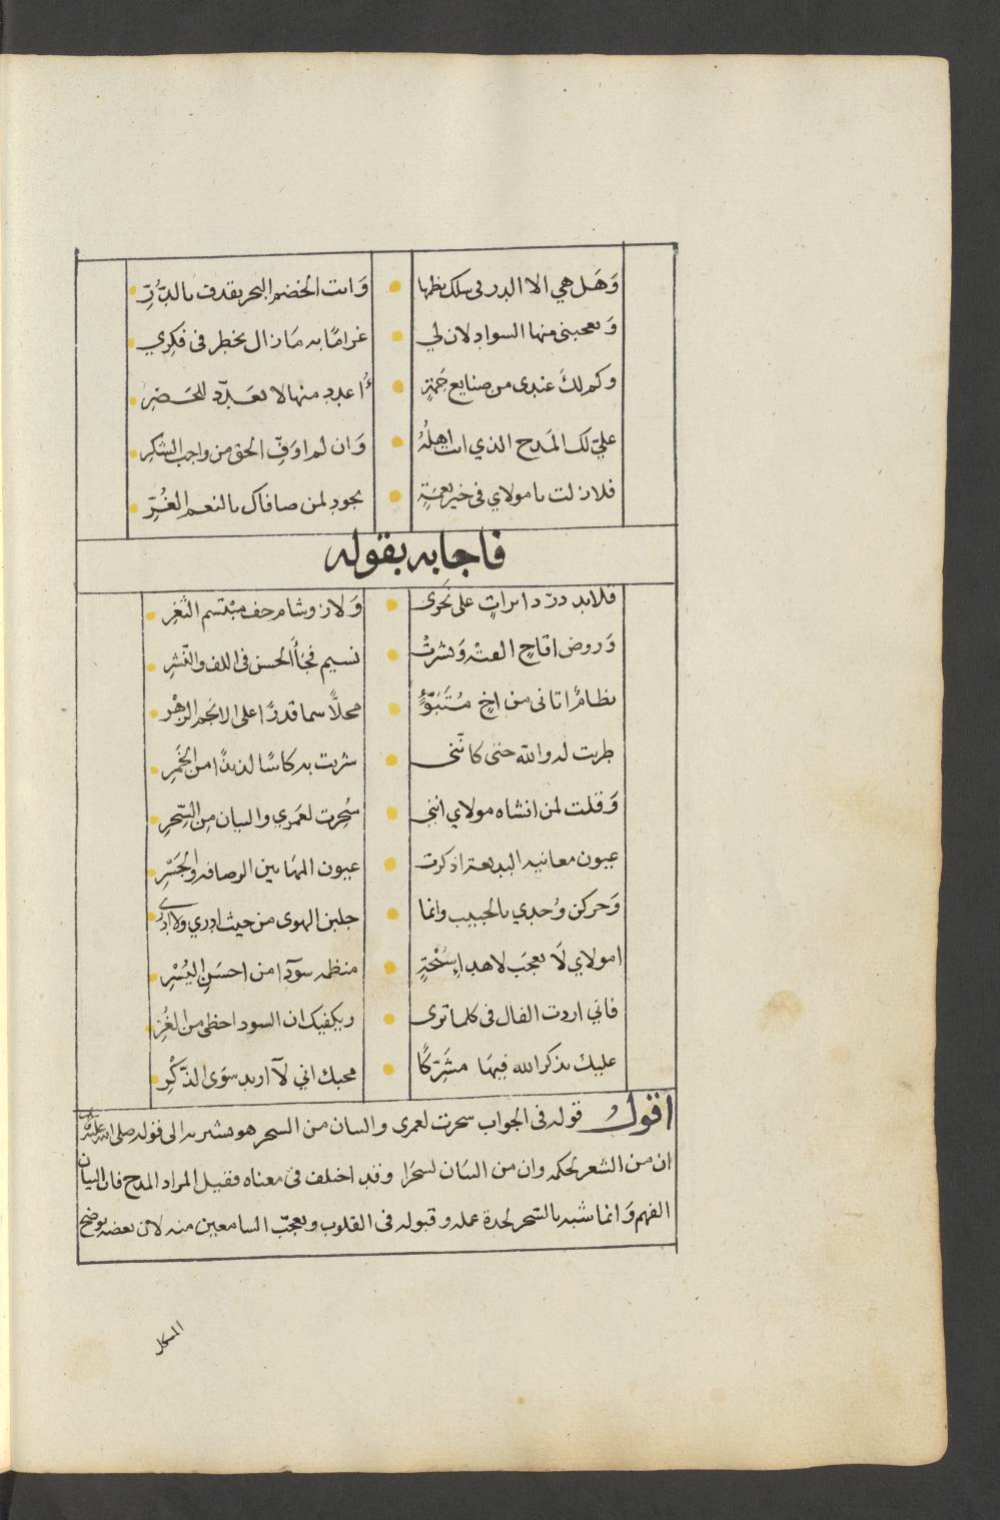 وَهَل هي الا الدر في سلك نظمها • وَانت الخضم البحر يقذف بالدُّرِّ
وَتعجبني منها السواد لان لي • غرامًا به مَا زال يخطر في فكري
وكم لكَ عندي من صنايع جَمّةٍ • أُعدد منها لا تعَدّد للحَصْرِ
عليّ لك المَدح الذي انت اهلُهُ • وَان لم اوَفِّ الحق من واجب الشكر
فلا زلت يا مولاي في خير نعمةٍ • بجودٍ لمن صافاك بالنعم الغُرِّ
فاجابه بقوله
قلايد درّ دايراتٍ على نحَرى • وَلاز وشام حف مبْتسم الثغرِ
وَروض اقاحٍ الفتْه وَنشرتْ • نسيم فجَأ الحسن في اللف والنّشرِ
نظامٌ اتاني من اخٍ مُتَبَوّءٍ • محلاًّ سما قدرًا على الانجم الزهْر
طربت له والله حتى كانّني • شربت به كاسًا لذيذًا من الخَمرِ
وَقلت لمن انشاه مولاي انني • سُحِرت لعَمري والبيان من السّحرِ
عيون معانيه البديعة اذكرت • عيون المهَا بين الرصافه والجَسْرِ
وَحركن وُجدي بالحبيب وانما • جلبن الهوى من حيث ادري ولا ادرى
امولاي لَا تعجَب لاهداء سُبْحَةٍ • منظمه سوَدآ من احسَنِ اليُسْرِ
فاني اردت الفال في كلما ترى • ويكفيك ان السود احظى من الغُرِّ
عليك بذكر الله فيهَا مشَرّكًا • محبك اني لآ اريد سوَى الذّكْرِ
اقول قوله في الجواب سحرت لعمرى والبيان من السحر هو يشير به الى قوله صلى الله عليه
ان من الشعر لحكمه وان من البيَان لسحرًا وقد اختلف في معناه فقيل المراد المدح فان البيان
الفهم وَانما شبه بالسّحر لحدة عمله وقبوله في القلوب وتعجّب السامعين منه لان بعضه يوضح
المشكل